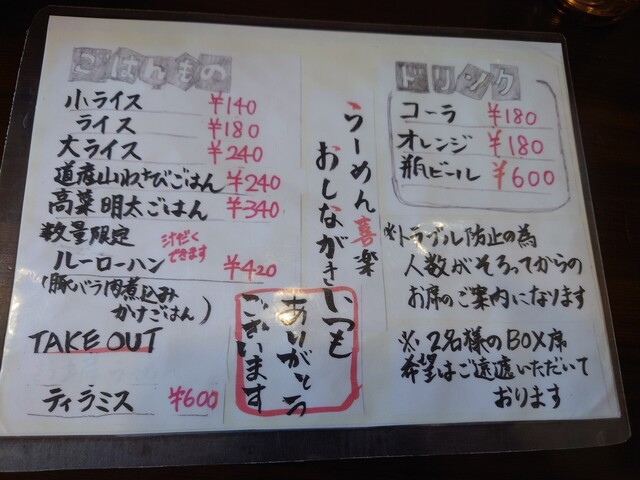 ごはんもの
小ライス ¥140
ライス ¥180
大ライス ¥240
道産山わさびごはん ¥240
高菜明太ごはん ¥340
数量限定 汁だくできます
ルーローハン ¥420
(豚バラ肉煮込み
かけごはん)
TAKE OUT
ティラミス ¥600
らーめん喜楽
おしながき
いつも
ありがとう
ございます
ドリンク
コーラ ¥180
オレンジ ¥180
瓶ビール ¥600
※トラブル防止の為
人数がそろってからの
お席のご案内になります
※2名様のBOX席
希望はご遠慮いただいて
おります